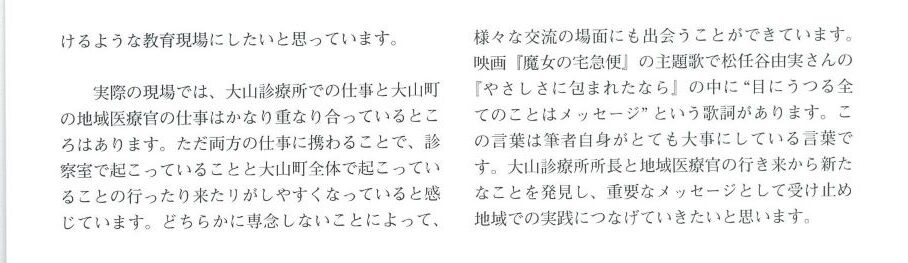 けるような教育現場にしたいと思っています。
実際の現場では、大山診療所での仕事と大山町
の地域医療官の仕事はかなり重なり合っているとこ
ろはあります。ただ両方の仕事に携わることで、診
察室で起こっていることと大山町全体で起こってい
ることの行ったり来たりがしやすくなっていると感
じています。どちらかに専念しないことによって、
様々な交流の場面にも出会うことができています。
映画『魔女の宅急便』の主題歌で松任谷由実さんの
『やさしさに包まれたなら』の中に“目にうつる全
てのことはメッセージ”という歌詞があります。こ
の言葉は筆者自身がとても大事にしている言葉で
す。大山診療所所長と地域医療官の行き来から新た
なことを発見し、重要なメッセージとして受け止め
地域での実践につなげていきたいと思います。